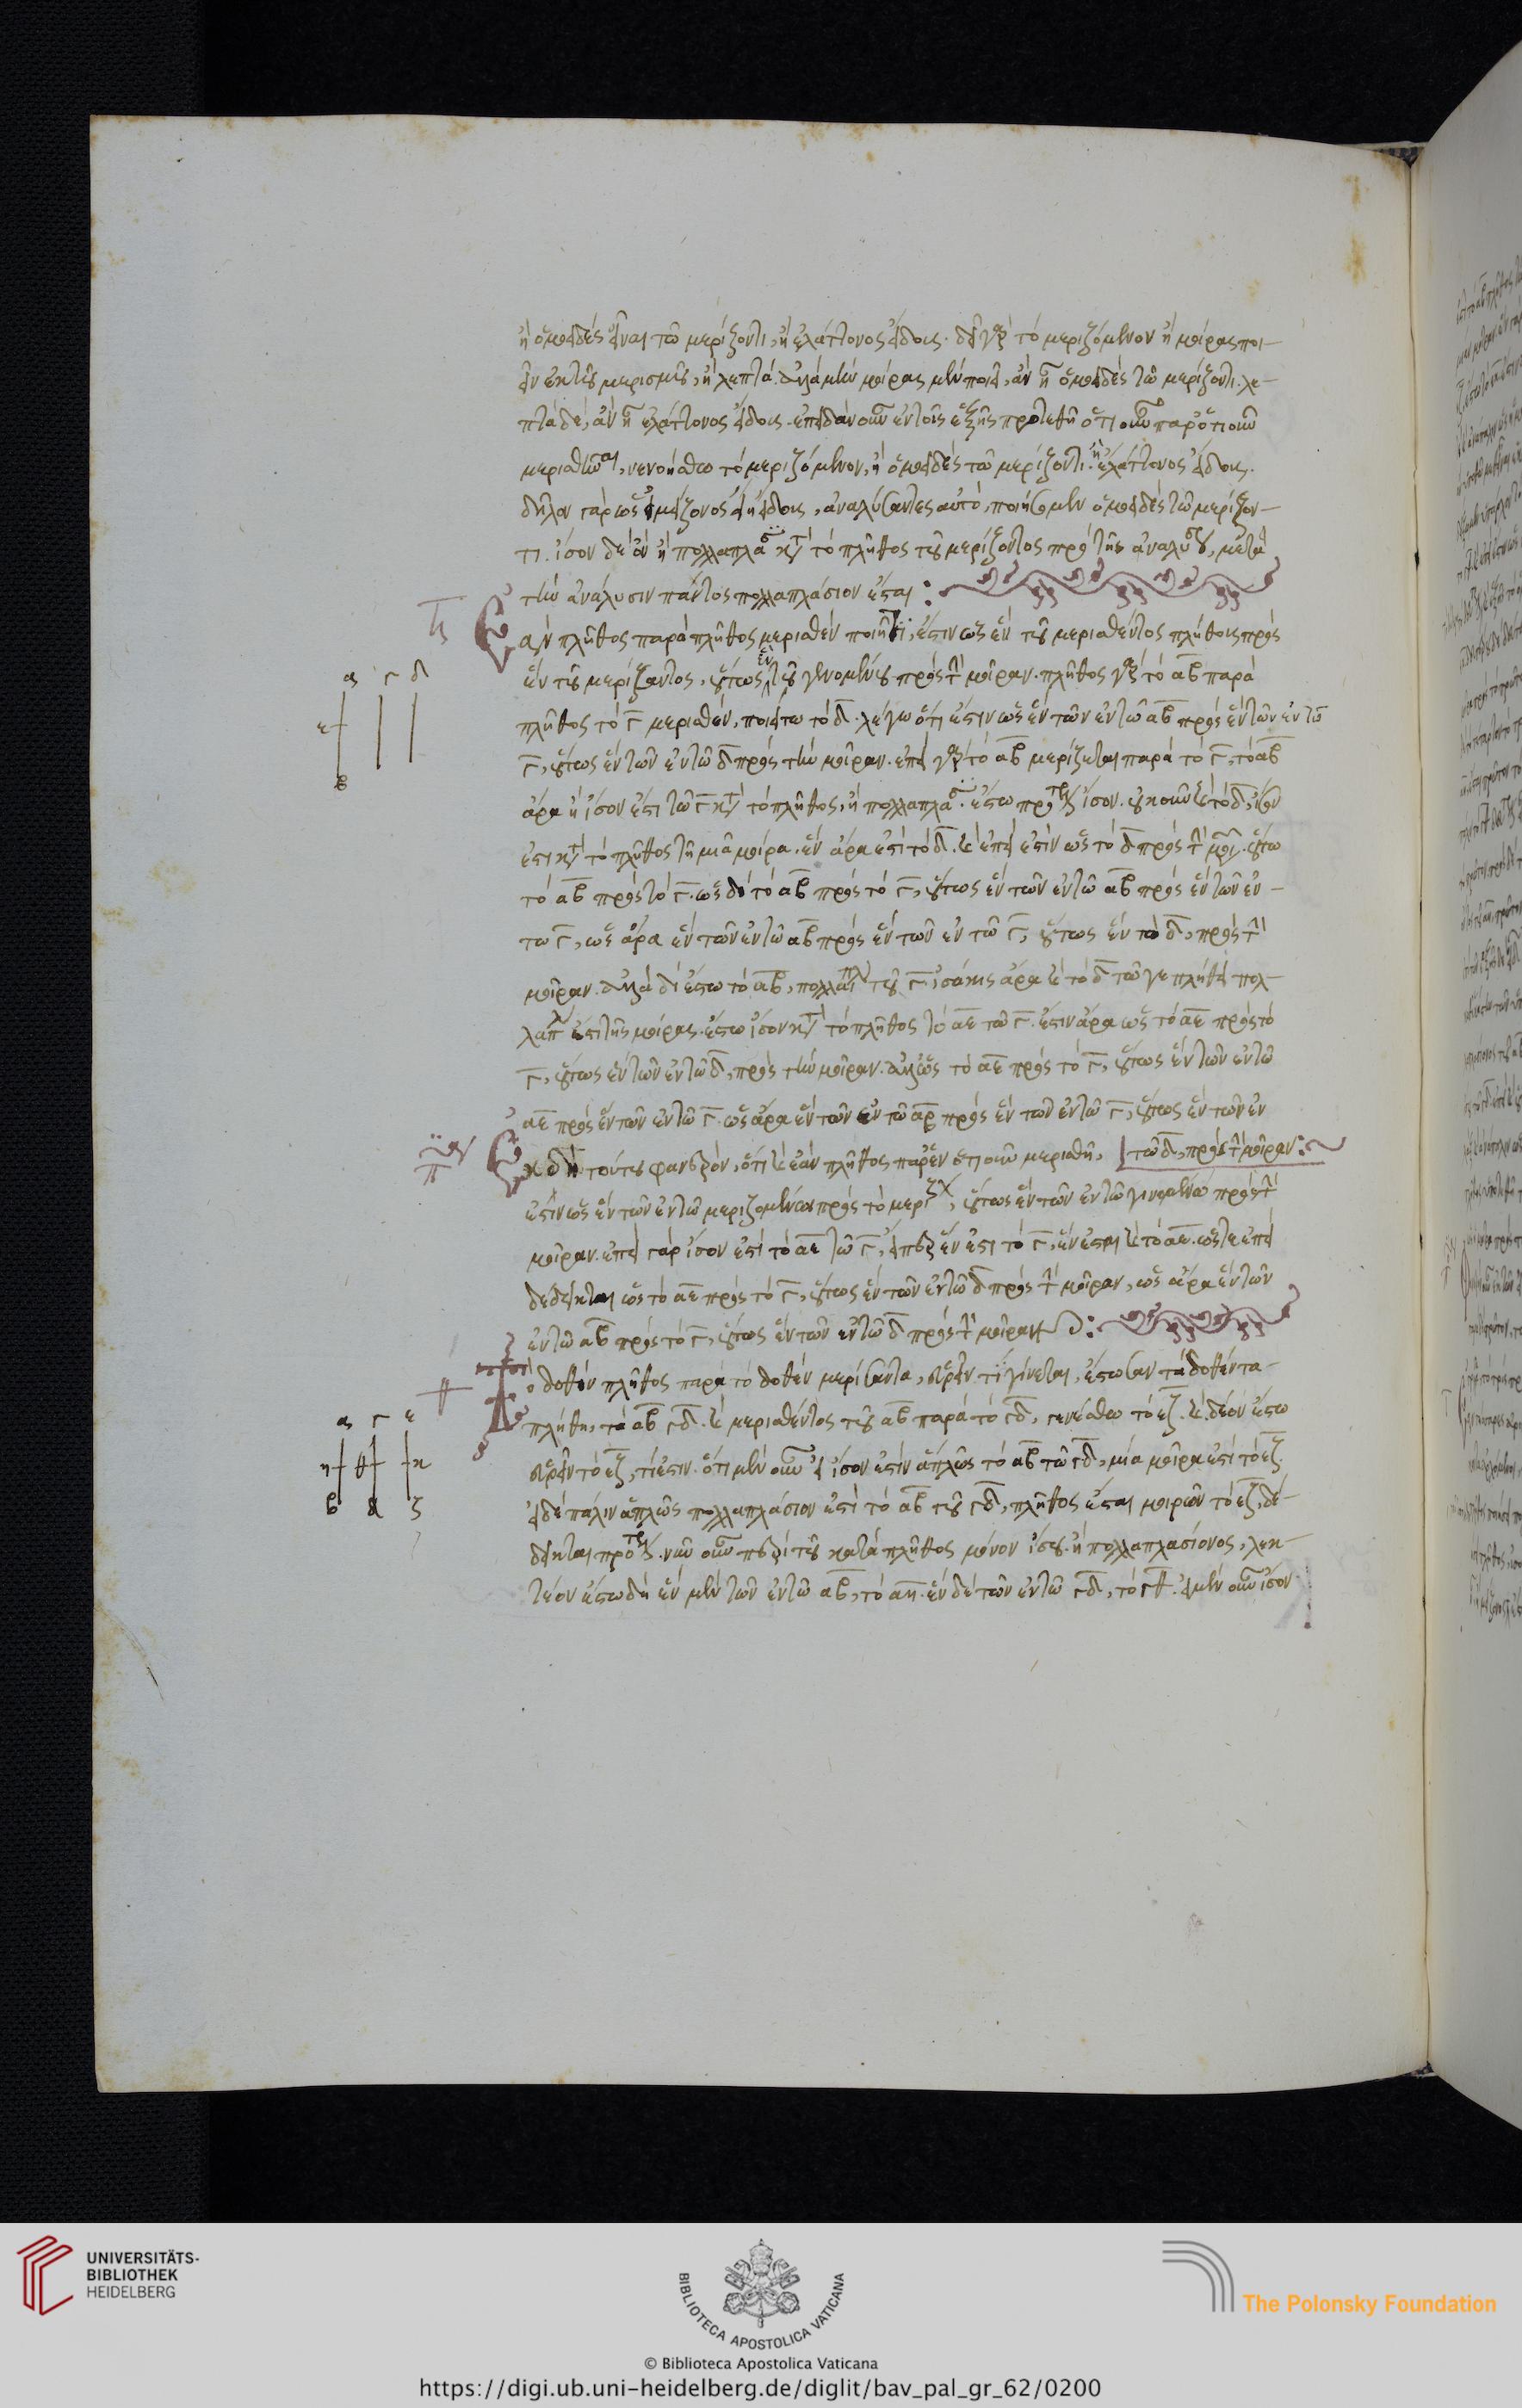 ἢ ὁμοειδὲς εἶναι τῶ μερίζοντι, ἢ ἐλάττονος εἴδους. δεῖ γὰρ τὸ μεριζόμενον ἢ μοίρας ποι-
εῖν ἐκ τοῦ μερισμοῦ, ἢ λεπτά. ἀλλὰ μὲν μοίρας μὲν ποιεῖ, ἂν ἦ ὁμοειδὲς τῶ μερίζοντι. λε-
πτὰ δέ, ἂν ἦ ἐλάττονος εἴδους. ἐπειδὰν οὖν ἐν τοῖς ἑξῆς προτεθῆ ὁτιοῦν παρ' ὁτιοῦν
μερισθῆναι, νενοήσθω τὸ μεριζόμενον, ἢ ὁμοειδὲς τῶ μερίζοντι. ἢ ἐλάττονος εἴδους.
δῆλον γὰρ ὡς εἰ μείζονος εἴη εἴδους, ἀναλύσαντες αὐτὸ, ποιήσομεν ὁμοειδὲς τῶ μερίζον-
τι. ἴσον δὲ ὂν ἢ πολλαπλάσ κατὰ τὸ πλῆθος τοῦ μερίζοντος πρὸ τῆς ἀναλύσ, μετὰ
τὴν ἀνάλυσιν πάντως πολλαπλάσιον ἔσται :
Ἐὰν πλῆθος παρὰ πλῆθος μερισθὲν ποιῆ τι, ἔστιν ὡς ἓν τοῦ μερισθέντος πλήθους πρὸς
ἓν τοῦ μερίζοντος, οὕτως ἓν τοῦ γενομένου πρὸς τὴν μοῖραν. πλῆθος γὰρ τὸ αβ παρὰ
πλῆθος τὸ γ μερισθὲν, ποιείτω τὸ δ. λέγω ὅτι ἐστὶν ὡς ἓν τῶν ἐν τῶ αβ πρὸς ἓν τῶν ἐν τῶ
γ, οὕτως ἓν τῶν ἐν τῶ δ πρὸς τὴν μοῖραν. ἐπεὶ γὰρ τὸ αβ μερίζεται παρὰ τὸ γ, τὸ αβ
ἄρα ἢ ἴσον ἐστὶ τῶ γ κατὰ τὸ πλῆθος, ἢ πολλαπλάσ. ἔστω πρότερ ἴσον. οὐκοῦν καὶ τὸ δ, ἴσον
ἐστὶ κατὰ τὸ πλῆθος τῆ μιᾶ μοίρα. ἓν ἄρα ἐστὶ τὸ δ. καὶ ἐπεί ἐστιν ὡς τὸ δ πρὸς τὴν μοῖραν. οὕτω
τὸ αβ πρὸς τὸ γ. ὡς δὲ τὸ αβ πρὸς τὸ γ, οὕτως ἓν τῶν ἐν τῶ αβ πρὸς ἓν τῶν ἐν -
τῶ γ, ὡς ἄρα ἓν τῶν ἐν τῶ αβ πρὸς ἓν τῶν ἐν τῶ γ, οὕτως ἓν τὸ δ, πρὸς τὴν
μοῖραν. ἀλλὰ δὴ ἔστω τὸ αβ, πολλαπλ τοῦ γ. ἰσάκις ἄρα καὶ τὸ δ τῶ γε πλήθει πολ-
λαπλ ἐστὶ τῆς μοίρας. ἔστω ἴσον κατὰ τὸ πλῆθος τὸ αε τῶ γ. ἔστιν ἄρα ὡς τὸ αε πρὸς τὸ
γ, οὕτως ἓν τῶν ἐν τῶ δ, πρὸς τὴν μοῖραν. ἀλλ' ὡς τὸ αε πρὸς τὸ γ, οὕτως ἓν τῶν ἐν τῶ
αε πρὸς ἓν τῶν ἐν τῶ γ. ὡς ἄρα ἓν τῶν ἐν τῶ αβ πρὸς ἓν τῶν ἐν τῶ γ, οὕτως ἓν τῶν ἐν
τῶ δ, πρὸς τὴν μοῖραν :~
Ἐκ δὴ τούτου φανερὸν, ὅτι καὶ ἐὰν πλῆθος παρ' ἓν ὁτιοῦν μερισθῆ,
ἐστὶν ὡς ἓν τῶν ἐν τῶ μεριζομένω πρὸς τὸ μερίζον, οὕτως ἓν τῶν ἐν τῶ γινομένω πρὸς τὴν
μοῖραν. ἐπεὶ γὰρ ἴσον ἐστὶ τὸ αε τῶ γ, εἴπερ ἕν ἐστι τὸ γ, ἓν ἔσται καὶ τὸ αε. ὥστε ἐπεὶ
δέδεικται ὡς τὸ αε πρὸς τὸ γ, οὕτως ἓν τῶν ἐν τῶ δ πρὸς τὴν μοῖραν, ὡς ἄρα ἓν τῶν
ἐν τῶ αβ πρὸς τὸ γ, οὕτως ἓν τῶν ἐν τῶ δ πρὸς τὴν μοῖραν :
Τὸ δοθὲν πλῆθος παρὰ τὸ δοθὲν μερίσαντα, εὑρεῖν τί γίνεται. ἔστωσαν τὰ δοθέντα -
πλήθη, τὰ αβ γδ. καὶ μερισθέντος τοῦ αβ παρὰ τὸ γδ, γενέσθω τὸ εζ. καὶ δέον ἔστω
εὑρεῖν τὸ εζ, τί ἐστιν. ὅτι μὲν οὖν εἰ ἴσον ἐστὶν ἁπλῶς τὸ αβ τῶ γδ, μία μοῖρα ἐστὶ τὸ εζ.
εἰ δὲ πάλιν ἁπλῶς πολλαπλάσιον ἐστὶ τὸ αβ τοῦ γδ, πλῆθος ἔσται μοιρῶν τὸ εζ, δέ-
δεικται πρότερ. νῦν οὖν περὶ τοῦ κατὰ πλῆθος μόνον ἴσου. ἢ πολλαπλασίονος, λεκ-
τέον. ἔστω δὴ ἓν μὲν τῶν ἐν τῶ αβ, τὸ αη. ἓν δὲ τῶν ἐν τῶ γδ, τὸ γθ. εἰ μὲν οὖν ἴσον
α γ δ
ε
β
α γ ε
η θ κ
β δ ζ
UNIVERSITÄTS-
BIBLIOTHEK
HEIDELBERG
BIBLIOTECA APOSTOLICA VATICANA
The Polonsky Foundation
© Biblioteca Apostolica Vaticana
https://digi.ub.uni-heidelberg.de/diglit/bav_pal_gr_62/0200